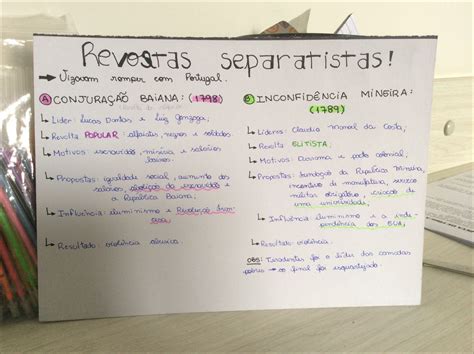 Revoltas separatistas!
→ Visavam romper com Portugal.
A CONJURAÇÃO BAIANA: (1798)
↳ Líder: Lucas Dantas e Luiz Gonzaga,
↳ Revolta POPULAR: alfaiates, negros e soldados.
↳ Motivos: escravidão, miséria e salários
baixos.
↳ Propostas: igualdade social, aumento dos
salários, abolição da escravidão e
a República Baiana.
↳ Influência: iluminismo e Revolução fran-
cesa.
↳ Resultado: violência
B INCONFIDÊNCIA MINEIRA:
(1789)
↳ Líderes: Claudio Manoel da Costa,
↳ Revolta ELITISTA:
↳ Motivos: Derrama e pacto colonial;
↳ Propostas: fundação da República Mineira,
incentivo de manufatura, serviço
militar obrigatório, criação de
uma universidade;
↳ Influência: iluminismo e a inde-
pendência dos EUA;
↳ Resultado: violência.
OBS: Tiradentes foi o líder das camadas
pobres → ao final foi esquartejado.